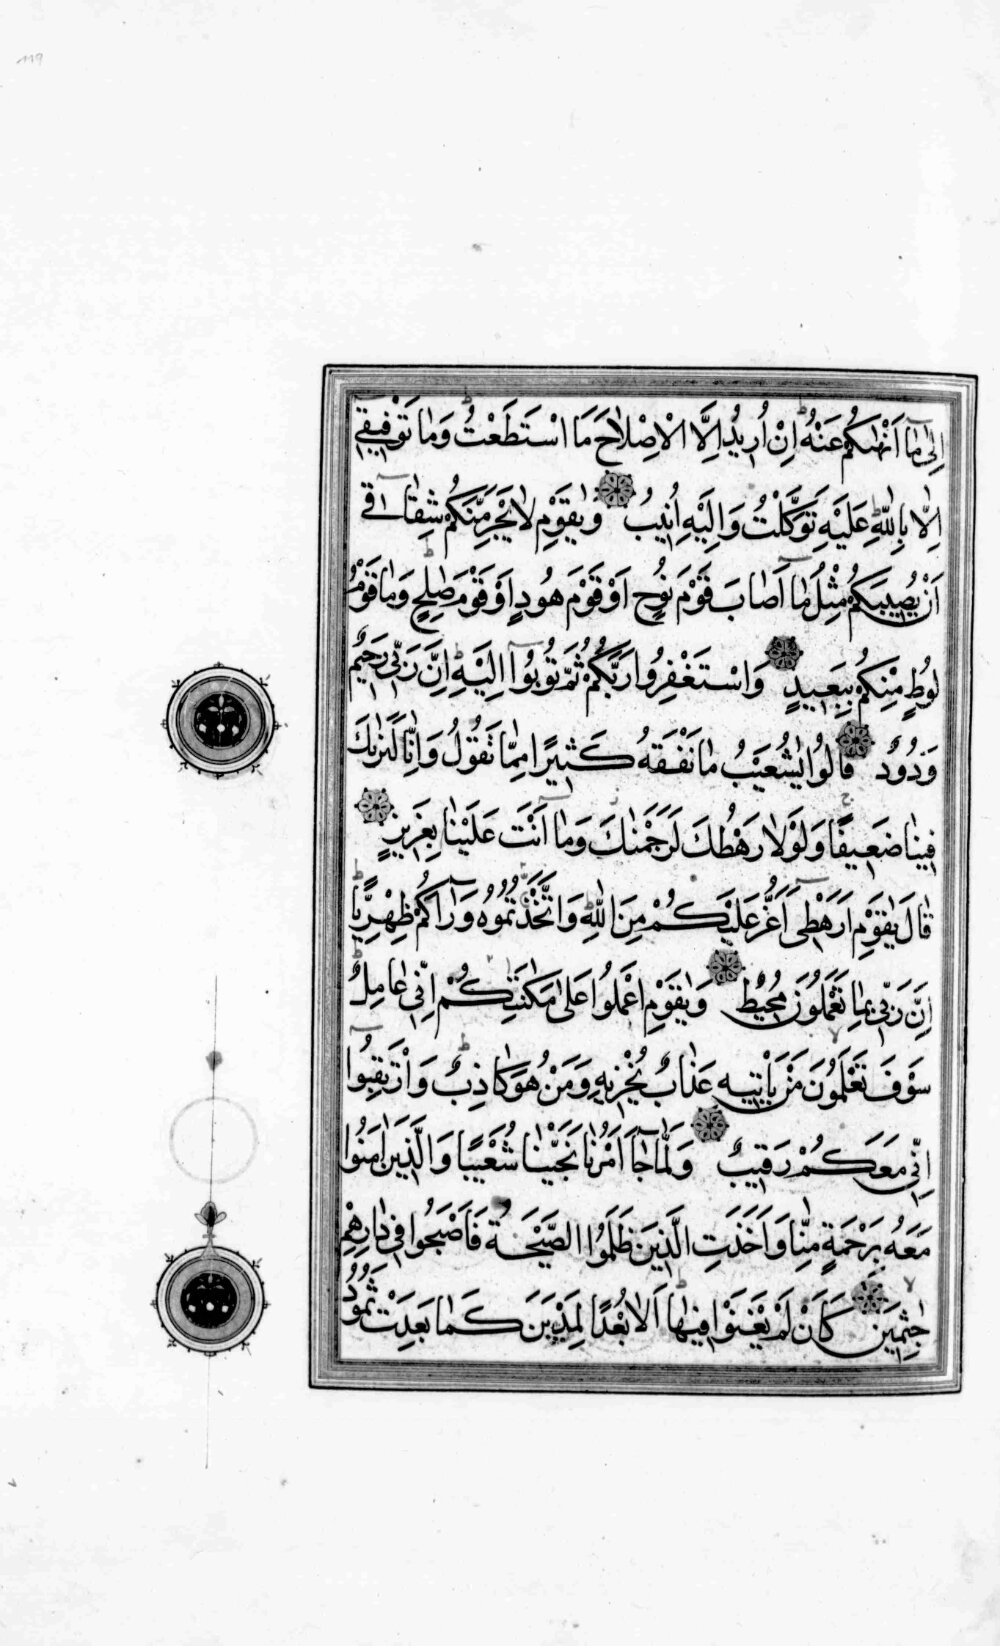 ١١٩
اِلٰى مٰا اَنْهٰيكُمْ عَنْهُ اِنْ اُرِيدُ اِلَّا الْاِصْلٰاحَ مَا اسْتَطَعْتُ وَمٰا تَوْفِيقِي
اِلّٰا بِاللّٰهِ عَلَيْهِ تَوَكَّلْتُ وَاِلَيْهِ اُنِيبُ وَيٰقَوْمِ لٰا يَجْرِمَنَّكُمْ شِقٰاقِي
اَنْ يُصِيبَكُمْ مِثْلُ مٰا اَصٰابَ قَوْمَ نُوحٍ اَوْ قَوْمَ هُودٍ اَوْ قَوْمَ صٰلِحٍ وَمٰا قَوْمُ
لُوطٍ مِنْكُمْ بِبَعِيدٍ وَاسْتَغْفِرُوا رَبَّكُمْ ثُمَّ تُوبُوا اِلَيْهِ اِنَّ رَبِّي رَحِيمٌ
وَدُودٌ قٰالُوا يٰشُعَيْبُ مٰا نَفْقَهُ كَثِيرًا مِمّٰا تَقُولُ وَاِنّٰا لَنَرٰيكَ
فِينٰا ضَعِيفًا وَلَوْلٰا رَهْطُكَ لَرَجَمْنٰكَ وَمٰا اَنْتَ عَلَيْنٰا بِعَزِيزٍ
قٰالَ يٰقَوْمِ اَرَهْطِي اَعَزُّ عَلَيْكُمْ مِنَ اللّٰهِ وَاتَّخَذْتُمُوهُ وَرٰاكُمْ ظِهْرِيًّا
اِنَّ رَبِّي بِمٰا تَعْمَلُونَ مُحِيطٌ وَيٰقَوْمِ اعْمَلُوا عَلٰى مَكٰنَتِكُمْ اِنِّي عٰامِلٌ
سَوْفَ تَعْلَمُونَ مَنْ يَاْتِيهِ عَذٰابٌ يُخْزِيهِ وَمَنْ هُوَ كٰاذِبٌ وَارْتَقِبُوا
اِنِّي مَعَكُمْ رَقِيبٌ وَلَمّٰا جٰا اَمْرُنٰا نَجَّيْنٰا شُعَيْبًا وَالَّذِينَ اٰمَنُوا
مَعَهُ بِرَحْمَةٍ مِنّٰا وَاَخَذَتِ الَّذِينَ ظَلَمُوا الصَّيْحَةُ فَاَصْبَحُوا فِي دِيٰارِهِمْ
جٰثِمِينَ كَاَنْ لَمْ يَغْنَوْا فِيهٰا اَلٰا بُعْدًا لِمَدْيَنَ كَمٰا بَعِدَتْ ثَمُودُ